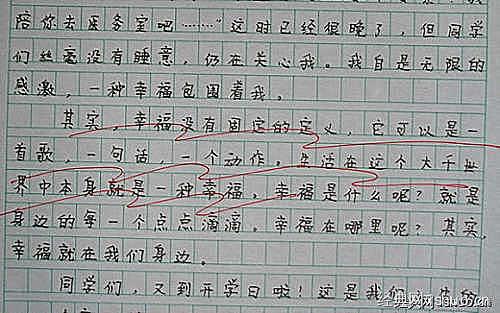 陪你去医务室吧………"这时已经很晚了，但同学
们丝毫没有睡意，仍在关心我。我自是无限的
感激，一种幸福包围着我。
其实，幸福没有固定的定义，它可以是一
首歌，一句话，一个动作。生活在这个大千世
界中本身就是一种幸福，幸福是什么呢？就是
身边的每一个点点滴滴。幸福在哪里呢？其实，
幸福就在我们身边。
同学们，又到开学日啦！这是我们